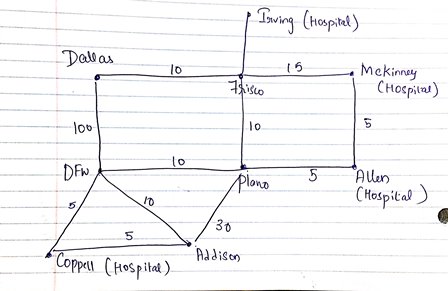 Irving (Hospital)
Dallas
10
15
Frisco
Mckinney
(Hospital)
100
10
5
DFW
10
Plano
5
Allen
(Hospital)
5
10
30
5
Addison
Coppell (Hospital)